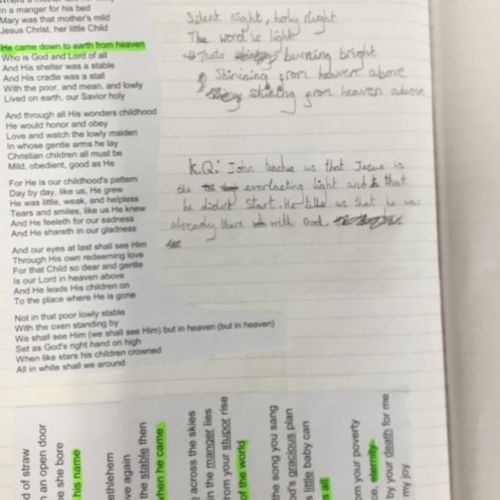 In a manger for his bed
Mary was that mother's mild
Jesus Christ, her little Child
He came down to earth from heaven
Who is God and Lord of all
And His shelter was a stable
And His cradle was a stall
With the poor, and mean, and lowly
Lived on earth, our Savior holy
And through all His wonders childhood
He would honor and obey
Love and watch the lowly maiden
In whose gentle arms he lay
Christian children all must be
Mild, obedient, good as He
For He is our childhood's pattern
Day by day, like us, He grew
He was little, weak, and helpless
Tears and smiles, like us He knew
And He feeleth for our sadness
And He shareth in our gladness
And our eyes at last shall see Him
Through His own redeeming love
For that Child so dear and gentle
Is our Lord in heaven above
And He leads His children on
To the place where He is gone
Not in that poor lowly stable
With the oxen standing by
We shall see Him (we shall see Him) but in heaven (but in heaven)
Set as God's right hand on high
When like stars his children crowned
All in white shall we around
Silent night, holy night
The word is light
burning bright
Shinining from heaven above
Shining from heaven above
K.Q: John teaches us that Jesus is
the everlasting light and that
he didn't start. He tells us that he was
already there with God.
d of straw
n an open door
e she bore
his name
ethlehem
ve again
the stable then
when he came
across the skies
in the manger lies
from your stupor rise
of the world
the song you sang
od's gracious plan
little baby can
s all
om your poverty
eternity
by your death for me
my joy